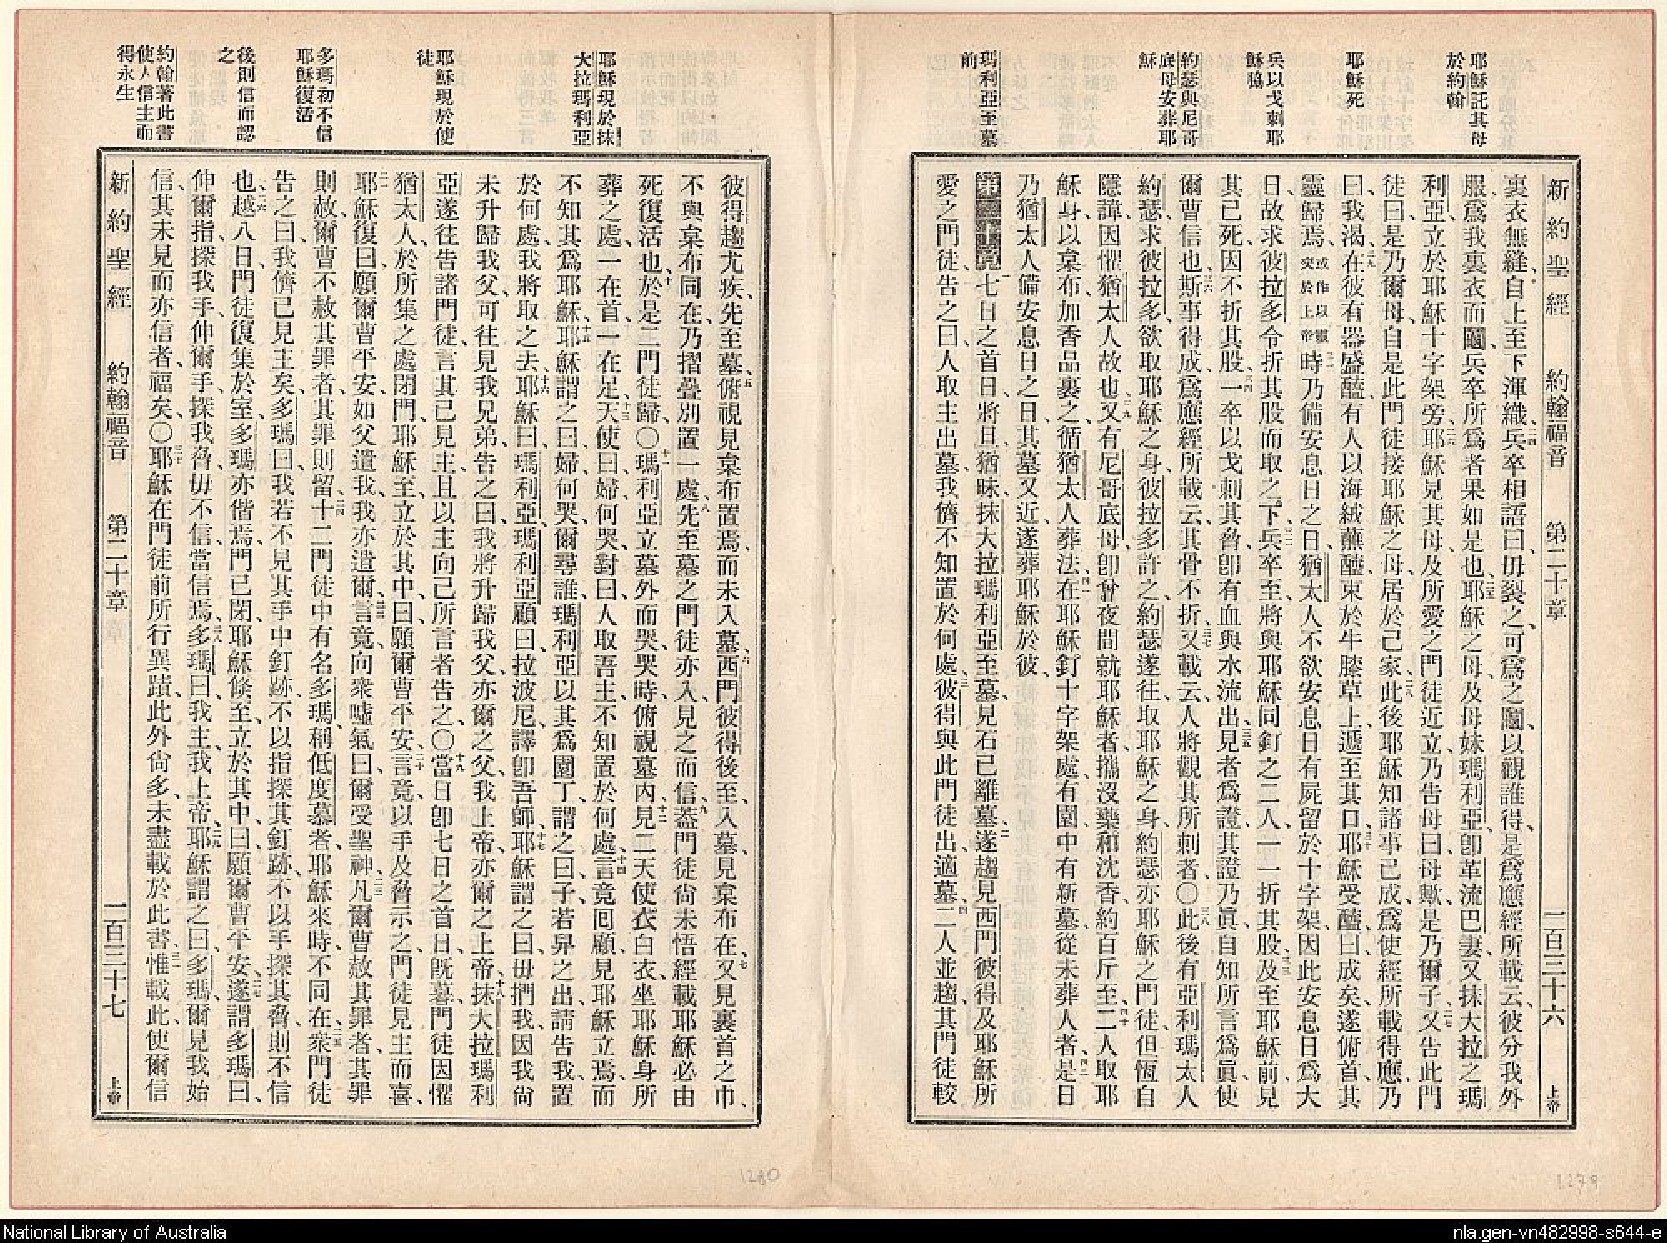 新約聖經 約翰福音 第二十章 二百三十六 上帝
耶穌託其母
於約翰
耶穌死
兵以戈刺耶
穌脇
約瑟與尼哥
底母安葬耶
穌
瑪利亞至墓
前
裏衣無縫、自上至下渾織、兵卒相語曰、毋裂之、可爲之鬮、以觀誰得、是爲應經所載云、彼分我外
服、爲我裏衣而鬮、兵卒所爲者、果如是也、耶穌之母、及母妹瑪利亞、卽革流巴妻、又抹大拉之瑪
利亞、立於耶穌十字架旁、耶穌見其母、及所愛之門徒近立、乃告母曰、母歟、是乃爾子、又告此門
徒曰、是乃爾母、自是此門徒接耶穌之母、居於己家、此後耶穌知諸事已成、爲使經所載得應、乃
曰、我渴、在彼有器盛醯、有人以海絨蘸醯、束於牛膝草上、遞至其口、耶穌受醯曰、成矣、遂俯首、其
靈歸焉、或作以靈交於上帝時乃備安息日之日、猶太人不欲安息日有屍留於十字架、因此安息日爲大
日、故求彼拉多、令折其股而取之下、兵卒至、將與耶穌同釘之二人、一一折其股、及至耶穌前、見
其已死、因不折其股、一卒以戈刺其脅、卽有血與水流出、見者爲證、其證乃眞、自知所言爲眞、使
爾曹信也、斯事得成、爲應經所載云、其骨不折、又載云、人將觀其所刺者、○此後有亞利瑪太人
約瑟、求彼拉多、欲取耶穌之身、彼拉多許之、約瑟遂往、取耶穌之身、約瑟亦耶穌之門徒、但恆自
隱諱、因懼猶太人故也、又有尼哥底母、卽曾夜間就耶穌者、攜沒藥和沈香約百斤至、二人取耶
穌身、以枲布加香品裹之、循猶太人葬法、在耶穌釘十字架處有園、園中有新墓、從未葬人者、是日
乃猶太人備安息日之日、其墓又近、遂葬耶穌於彼、
第二十章 七日之首日、將旦猶昧、抹大拉瑪利亞至墓、見石已離墓、遂趨見西門彼得、及耶穌所
愛之門徒、告之曰、人取主出墓、我儕不知置於何處、彼得與此門徒出、適墓、二人並趨、其門徒較
耶穌現於抹
大拉瑪利亞
耶穌現於使
徒
多瑪初不信
耶穌復活
後則信而認
之
約翰著此書
使人信主而
得永生
彼得趨尤疾、先至墓、俯視、見枲布置焉、而未入墓、西門彼得後至、入墓、見枲布在、又見裹首之巾、
不與枲布同在、乃摺疊別置一處、先至墓之門徒亦入、見之而信、蓋門徒尙未悟經載耶穌必由
死復活也、於是二門徒歸、○瑪利亞立墓外而哭、哭時、俯視墓內、見二天使衣白衣、坐耶穌身所
葬之處、一在首、一在足、天使曰、婦何哭、對曰、人取吾主、不知置於何處、言竟回顧、見耶穌立焉、而
不知其爲耶穌、耶穌謂之曰、婦何哭、爾尋誰、瑪利亞以其爲園丁、謂之曰、子若舁之出、請告我置
於何處、我將取之去、耶穌曰、瑪利亞、瑪利亞顧曰、拉波尼、譯卽吾師、耶穌謂之曰、毋捫我、因我尙
未升歸我父、可往見我兄弟、告之曰、我將升歸我父、亦爾之父、我上帝、亦爾之上帝、抹大拉瑪利
亞遂往告諸門徒、言其已見主、且以主向己所言者告之、○當日、卽七日之首日、旣暮、門徒因懼
猶太人、於所集之處閉門、耶穌至、立於其中曰、願爾曹平安、言竟、以手及脅示之、門徒見主而喜、
耶穌復曰、願爾曹平安、如父遣我、我亦遣爾、言竟、向衆噓氣曰、爾受聖神、凡爾曹赦其罪者、其罪
則赦、爾曹不赦其罪者、其罪則留、十二門徒中有名多瑪、稱低度慕者、耶穌來時、不同在、衆門徒
告之曰、我儕已見主矣、多瑪曰、我若不見其手中釘跡、不以指探其釘跡、不以手探其脅、則不信
也、越八日、門徒復集於室、多瑪亦偕焉、門已閉、耶穌倏至、立於其中曰、願爾曹平安、遂謂多瑪曰、
伸爾指、探我手、伸爾手、探我脅、毋不信、當信焉、多瑪曰、我主、我上帝、耶穌謂之曰、多瑪、爾見我始
信、其未見而亦信者、福矣、○耶穌在門徒前、所行異蹟、此外尙多、未盡載於此書、惟載此、使爾信
新約聖經 約翰福音 第二十章 二百三十七 上帝
1280
1279
National Library of Australia
nla.gen-vn482998-s644-e